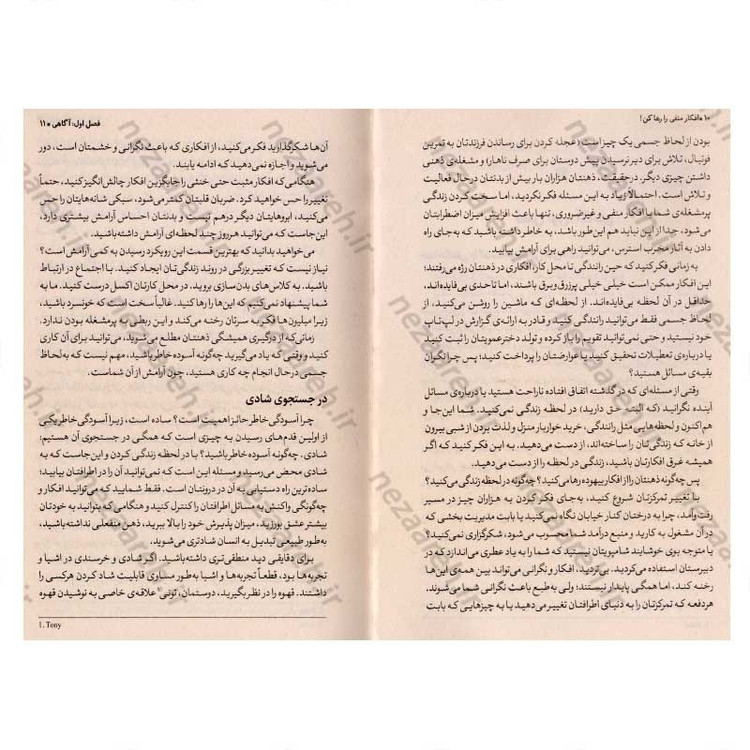 ۱۰ • افکار منفی را رها کن!
بودن از لحاظ جسمی یک چیز است (عجله کردن برای رساندن فرزندتان به تمرین
فوتبال، تلاش برای دیر نرسیدن پیش دوستان برای صرف ناهار) و مشغله‌ی ذهنی
داشتن چیزی دیگر. درحقیقت، ذهنتان هزاران بار بیش از بدنتان درحال فعالیت
و تلاش است. احتمالا زیاد به این مسئله فکر نکردید، اما سخت کردن زندگی
پرمشغله‌ی شما با افکار منفی و غیرضروری، تنها باعث افزایش میزان اضطرابتان
می‌شود، چرا از این نباید هم این‌طور باشد. به خاطر داشته باشید که به‌جای راه
دادن به آثار مخرب استرس، می‌توانید راهی برای آرامش بیابید.
به زمانی فکر کنید که حین رانندگی تا محل کار، افکاری در ذهنتان رژه می‌رفتند؛
این افکار ممکن است خیلی خیلی پرزرق‌وبرق باشند، اما تا حدی بی‌فایده‌اند،
حداقل در آن لحظه بی‌فایده‌اند. از لحظه‌ای که ماشین را روشن می‌کنید، از
لحاظ جسمی فقط می‌توانید رانندگی کنید و قادر به ارائه‌ی گزارش در لپ‌تاپ
خود نیستید و حتی نمی‌توانید تقویم را باز کرده و تولد دخترعمویتان را ثبت کنید
یا درباره‌ی تعطیلات تحقیق کنید یا عوارضتان را پرداخت کنید؛ پس چرا نگران
بقیه‌ی مسائل هستید؟
وقتی از مسئله‌ای که در گذشته اتفاق افتاده ناراحت هستید یا درباره‌ی مسائل
آینده نگرانید (که البته حق دارید)، در لحظه زندگی نمی‌کنید. شما این‌جا و
هم‌اکنون و لحظه‌هایی مثل رانندگی، خرید خواربار منزل و لذت بردن از شبی بیرون
از خانه که زندگی‌تان را ساخته‌اند، از دست می‌دهید. به این فکر کنید که اگر
همیشه غرق افکارتان باشید، زندگی در لحظه را از دست می‌دهید.
پس چه‌گونه ذهنتان را از افکار بیهوده رها می‌کنید؟ چه‌گونه در لحظه زندگی می‌کنید؟
با تغییر تمرکزتان شروع کنید، به‌جای فکر کردن به هزاران چیز در مسیر
رفت‌وآمد، چرا به درختان کنار خیابان نگاه نمی‌کنید یا بابت مدیریت بخشی که
در آن مشغول به کارید و منبع درآمد شما محسوب می‌شود، شکرگزاری نمی‌کنید؟
یا متوجه بوی خوشایند شامپویتان نیستید که شما را به یاد عطری می‌اندازد که در
دبیرستان استفاده می‌کردید. بی‌تردید، افکار و نگرانی می‌تواند بین همه‌ی این‌ها
رخنه کند، اما همگی پایدار نیستند؛ ولی به‌طبع باعث نگرانی شما می‌شوند.
هردفعه که تمرکزتان را به دنیای اطرافتان تغییر می‌دهید یا به چیزهایی که بابت
فصل اول: آگاهی • ۱۱
آن‌ها شکرگذارید فکر می‌کنید، از افکاری که باعث نگرانی و خشمتان است، دور
می‌شوید و اجازه نمی‌دهید که ادامه یابند.
هنگامی‌که افکار مثبت حتی خنثی را جایگزین افکار چالش‌انگیز کنید، حتماً
تغییر را حس خواهید کرد. ضربان قلبتان کمتر می‌شود، سبکی شانه‌هایتان را حس
می‌کنید، ابروهایتان دیگر درهم نیست و بدنتان احساس آرامش بیشتری دارد،
این‌جاست که می‌توانید هر روز چند لحظه‌ای آرامش داشته‌باشید.
می‌خواهید بدانید که بهترین قسمت این رویکرد رسیدن به کمی آرامش است؟
نیاز نیست که تغییر بزرگی در روند زندگی‌تان ایجاد کنید. با اجتماع در ارتباط
باشید، به کلاس‌های بدن‌سازی بروید، در محل کارتان اکسل درست کنید. ما به
شما پیشنهاد نمی‌کنیم که این‌ها را رها کنید. غالباً سخت است که خونسرد باشید،
زیرا میلیون‌ها فکر به سرتان رخنه می‌کند و این ربطی به پرمشغله بودن ندارد.
زمانی‌که از درگیری همیشگی ذهنتان مطلع می‌شوید، می‌توانید برای آن کاری
کنید و وقتی که یاد می‌گیرید چه‌گونه آسوده خاطر باشید، مهم نیست که به‌لحاظ
جسمی درحال انجام چه کاری هستید، چون آرامش از آن شماست.
در جستجوی شادی
چرا آسودگی خاطر حائز اهمیت است؟ ساده است، زیرا آسودگی خاطر یکی
از اولین قدم‌های رسیدن به چیزی است که همگی در جستجوی آن هستیم:
شادی. چه‌گونه آسوده خاطر باشید؟ با در لحظه زندگی کردن و این‌جاست که به
شادی محض می‌رسید و مسئله این است که نمی‌توانید آن را در اطرافتان بیابید؛
ساده‌ترین راه دستیابی به آن در درونتان است. فقط شمایید که می‌توانید افکار و
چه‌گونگی واکنش به مسائل اطرافتان را کنترل کنید و هنگامی که بتوانید به خودتان
بیشتر عشق بورزید، میزان پذیرش خود را بالا ببرید، ذهن منفعلی نداشته‌باشید،
به‌طور طبیعی تبدیل به انسان شادتری می‌شوید.
برای دقایقی دید منطقی‌تری داشته‌باشید. اگر شادی و خرسندی در اشیا و
تجربه‌ها بود، قطعاً تجربه‌ها و اشیا به‌طور مساوی قابلیت شاد کردن هرکسی را
داشتند. قهوه را در نظر بگیرید، دوستمان، تونی¹ علاقه‌ی خاصی به نوشیدن قهوه
1. Tony
nezaareh.ir